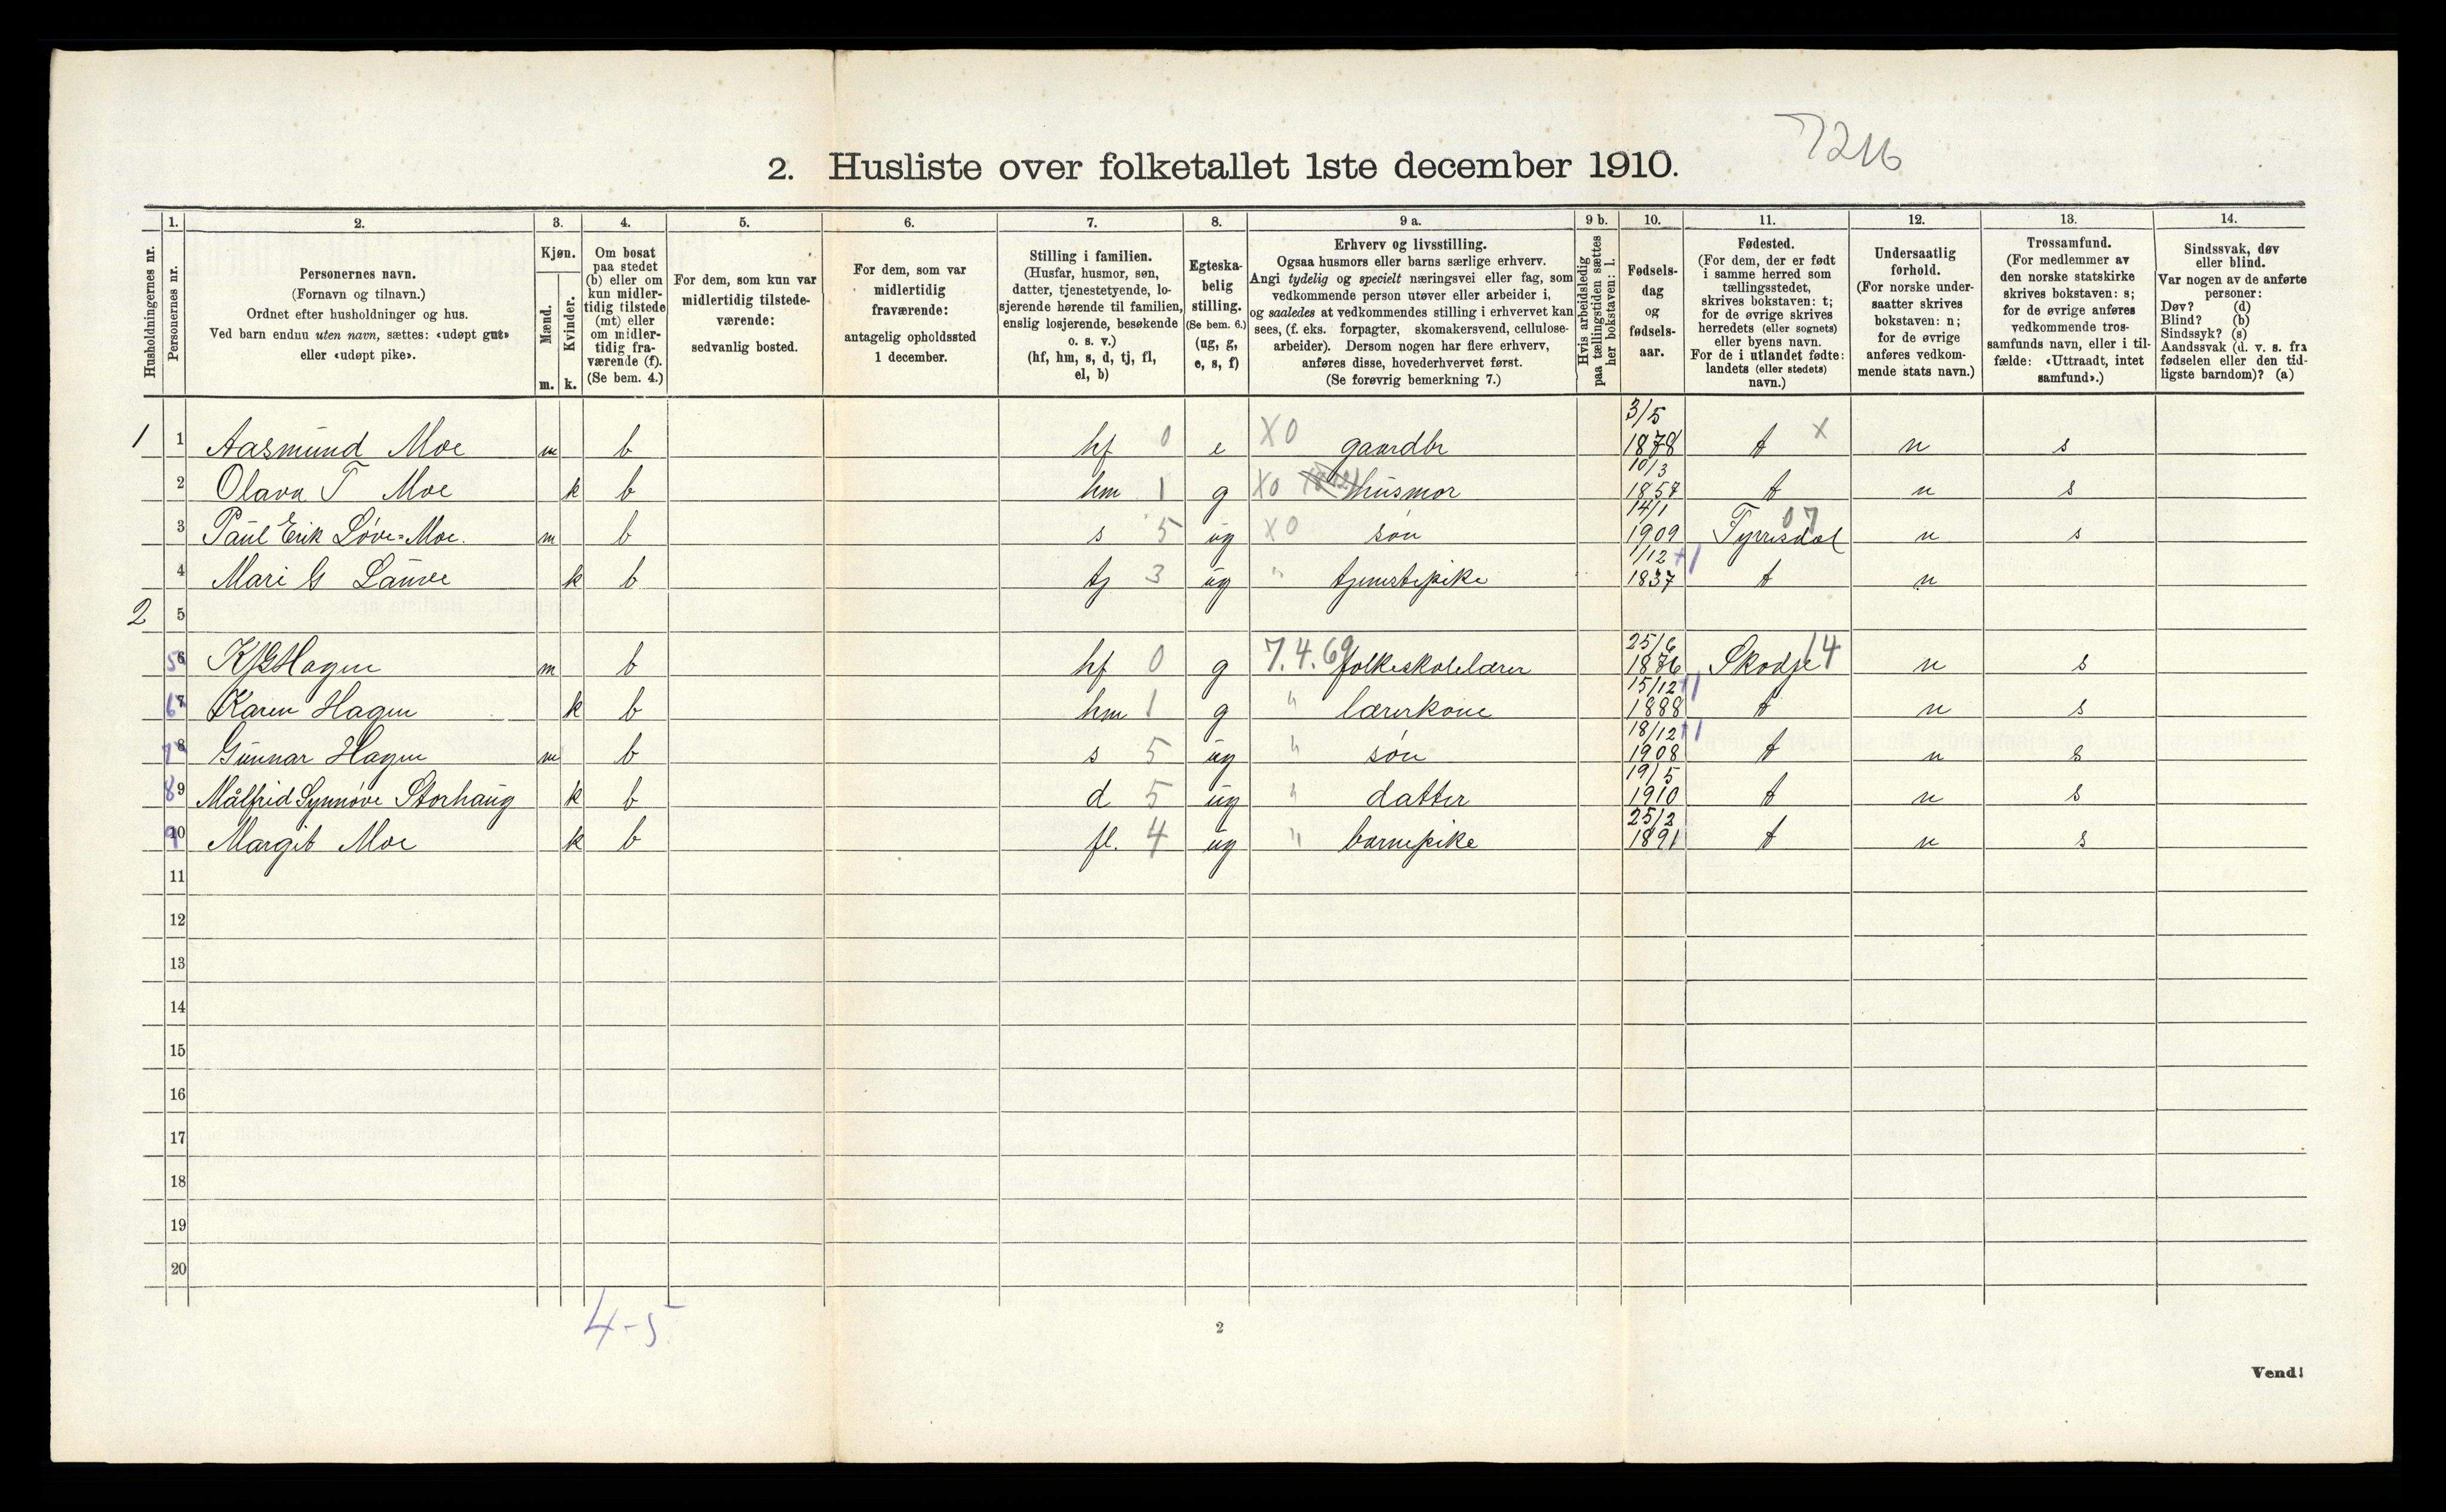 7216
2. Husliste over folketallet 1ste december 1910.
Husholdningernes nr.
1. Personernes nr.
2. Personernes navn. (Fornavn og tilnavn.) Ordnet efter husholdninger og hus. Ved barn endnu uten navn, sættes: «udøpt gut» eller «udøpt pike».
3. Kjøn. Mænd. m. Kvinder. k.
4. Om bosat paa stedet (b) eller om kun midler-tidig tilstede (mt) eller om midler-tidig fra-værende (f). (Se bem. 4.)
5. For dem, som kun var midlertidig tilstede-værende: sedvanlig bosted.
6. For dem, som var midlertidig fraværende: antagelig opholdssted 1 december.
7. Stilling i familien. (Husfar, husmor, søn, datter, tjenestetyende, lo-sjerende hørende til familien, enslig losjerende, besøkende o. s. v.) (hf, hm, s, d, tj, fl, el, b)
8. Egteska-belig stilling. (Se bem. 6.) (ug, g, e, s, f)
9 a. Erhverv og livsstilling. Ogsaa husmors eller barns særlige erhverv. Angi tydelig og specielt næringsvei eller fag, som vedkommende person utøver eller arbeider i, og saaledes at vedkommendes stilling i erhvervet kan sees, (f. eks. forpagter, skomakersvend, cellulose-arbeider). Dersom nogen har flere erhverv, anføres disse, hovederhvervet først. (Se forøvrig bemerkning 7.)
9 b. Hvis arbeidsledig paa tællingstiden sættes her bokstaven: l.
10. Fødsels-dag og fødsels-aar.
11. Fødested. (For dem, der er født i samme herred som tællingsstedet, skrives bokstaven: t; for de øvrige skrives herredets (eller sognets) eller byens navn. For de i utlandet fødte: landets (eller stedets) navn.)
12. Undersaatlig forhold. (For norske under-saatter skrives bokstaven: n; for de øvrige anføres vedkom-mende stats navn.)
13. Trossamfund. (For medlemmer av den norske statskirke skrives bokstaven: s; for de øvrige anføres vedkommende tros-samfunds navn, eller i til-fælde: «Uttraadt, intet samfund».)
14. Sindssvak, døv eller blind. Var nogen av de anførte personer: Døv? (d) Blind? (b) Sindssyk? (s) Aandssvak (d. v. s. fra fødselen eller den tid-ligste barndom)? (a)
1 1 Aasmund Moe m b hf 0 e X0 gaardbr 3/5 1878 t X n s
2 Olava T Moe k b hm 1 g X0 husmor 10/3 1857 t n s
3 Paul Erik Løve=Moe. m b s 5 ug X0 søn 14/1 1909 Tyrrisdal 07 n s
4 Mari G Lauve k b tj 3 ug " tjenestepike 1/12 1837 +1 t n
2 5
5 6 K G Hagen m b hf 0 g 7.4.69 folkeskolelærer 25/6 1876 Skodje 14 n s
6 7 Karen Hagen k b hm 1 g " lærerkone 15/12 1888 +1 t n s
7 8 Gunnar Hagen m b s 5 ug " søn 18/12 1908 +1 t n s
8 9 Målfrid Synnøve Storhaug k b d 5 ug " datter 19/5 1910 t n s
9 10 Margit Moe k b fl. 4 ug " barnepike 25/2 1891 t n s
11
12
13
14
15
16
17
18
19
20
4-5
2
Vend!